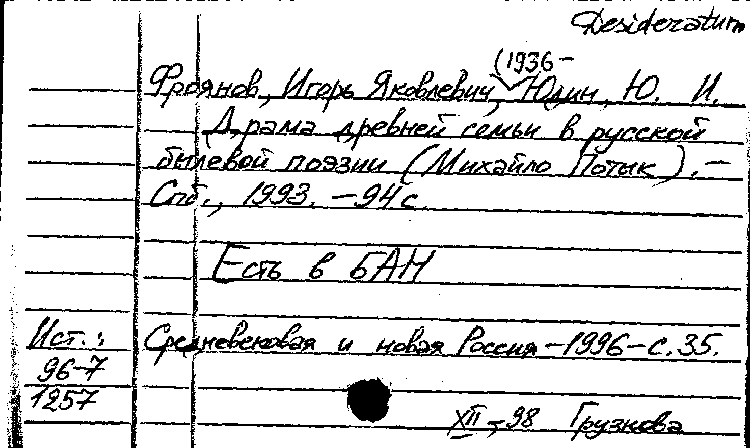 Desideratum
(1936-
Фроянов, Игорь Яковлевич, Юдин, Ю. И.
Драма древней семьи в русской
былевой поэзии (Михайло Потык). –
Спб., 1993. – 94 с.
Есть в БАН
Ист.: Средневековая и новая Россия – 1996 – с. 35.
96-7
1257
XII-98 Грузнова